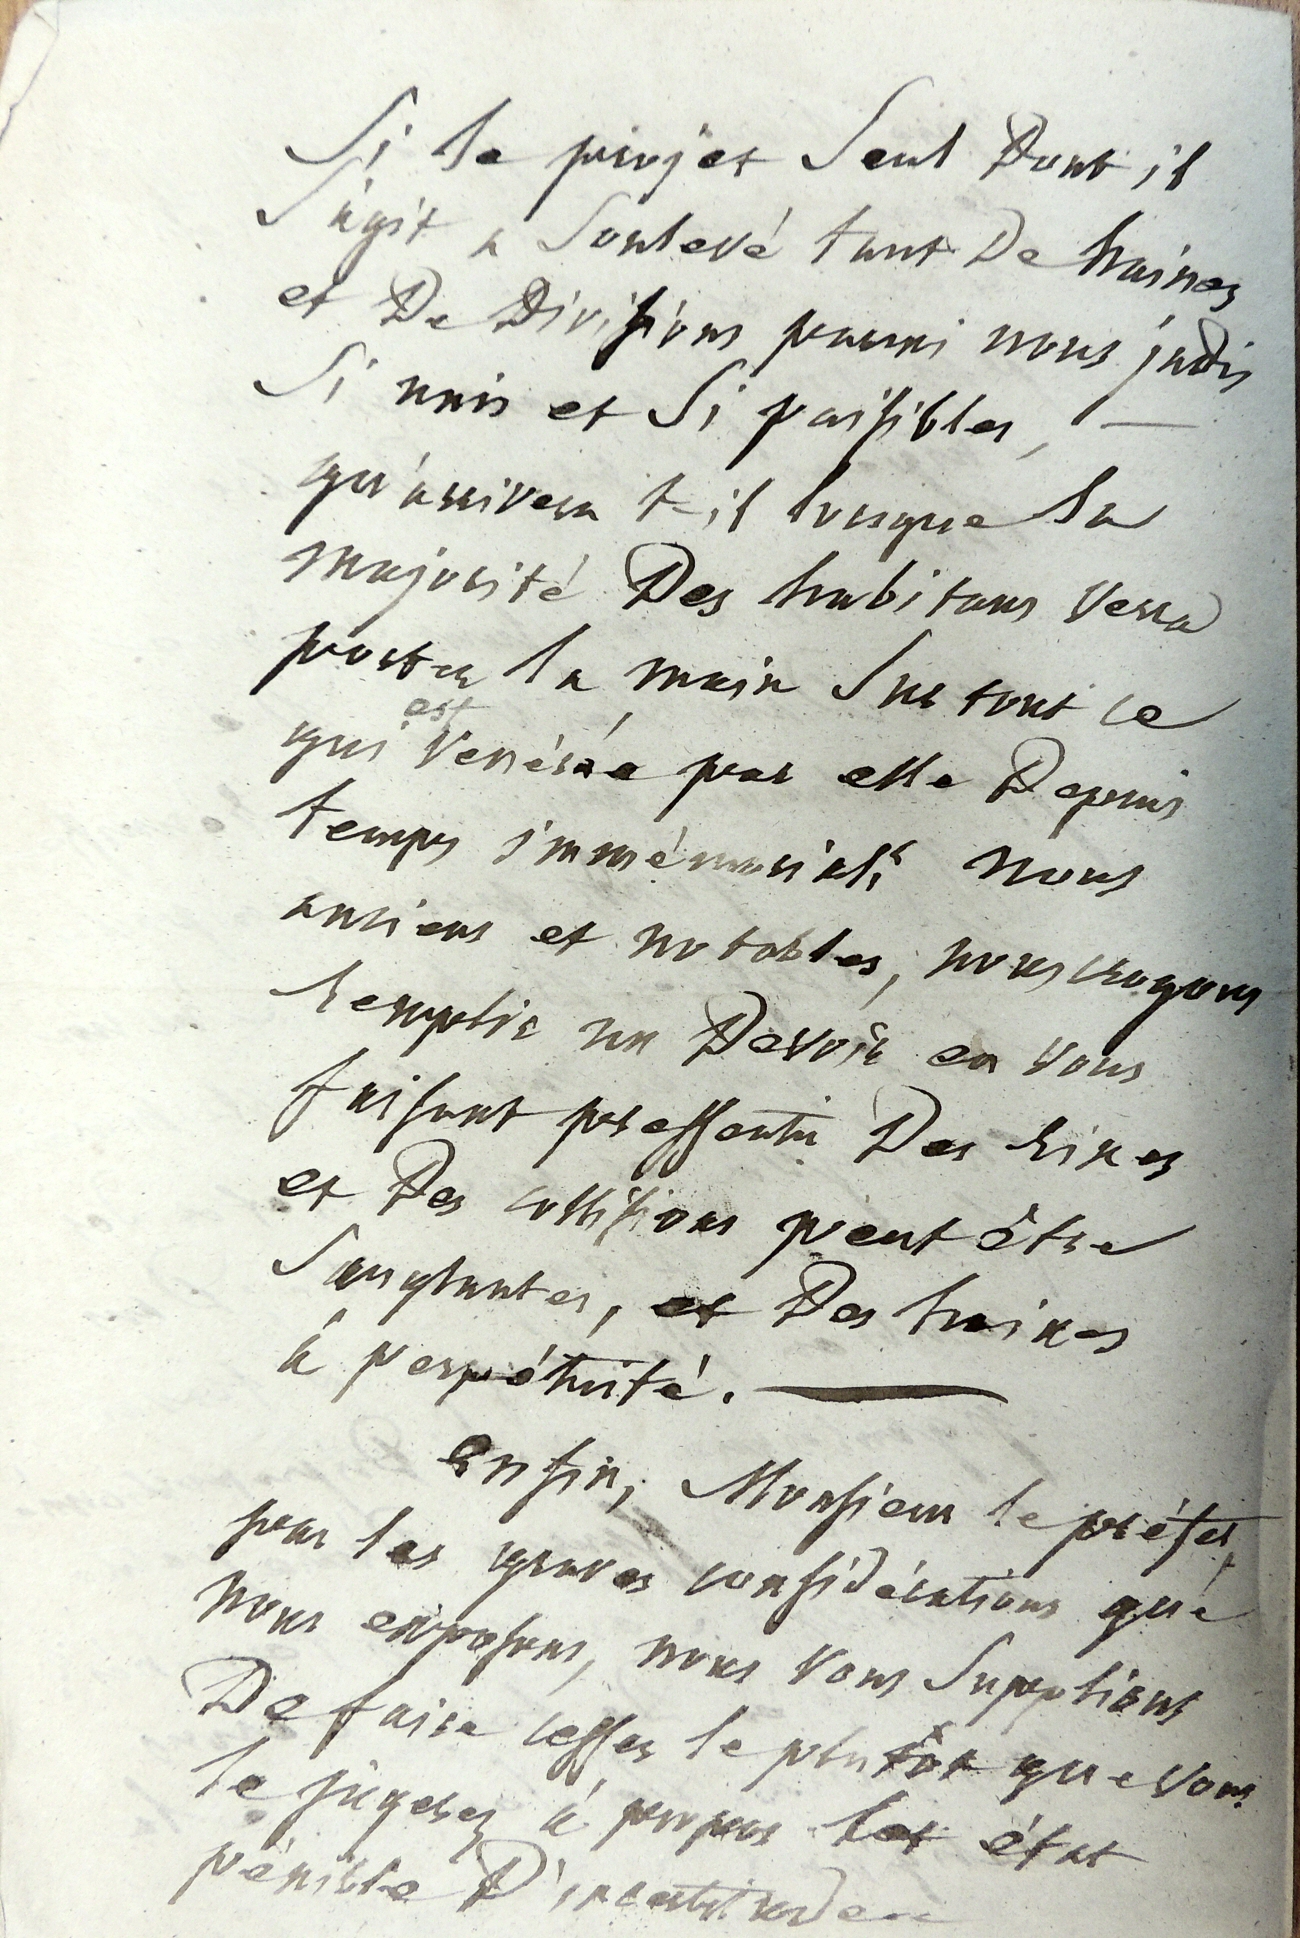 Si le projet Seul Dont il
S'agit a Soulevé tant De haines
et De Divisions parmi nous jadis
Si unis et Si paisibles, —
qu'arrivera t-il lorsque la
majorité Des habitans Verra
porter la main Sur tout ce
qui est Vénérée par elle Depuis
temps immémorial; nous
anciens et notables, nous croyons
remplir un Devoir en Vous
faisant pressentir Des rixes
et Des collisions peut être
Sanglantes, et Des haines
à perpétuité. —
Enfin, Monsieur le préfet,
par les graves considérations que
nous exposons, nous Vous Supplions
De faire cesser le plutôt que Vous
le jugerez à propos cet état
pénible D'incertitude